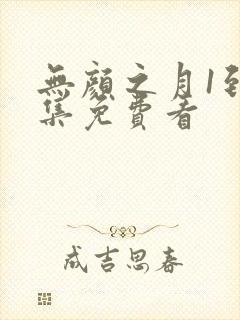 無顏之月1到
集免費看
成吉思春